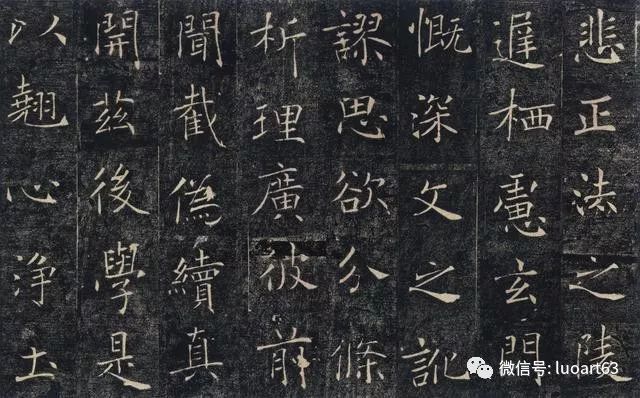 悲正法之陵
遲栖慮玄門
慨深文之訛
謬思欲分條
析理廣彼前
聞截偽續真
開茲後學是
以翹心淨土
微信号: luoart63